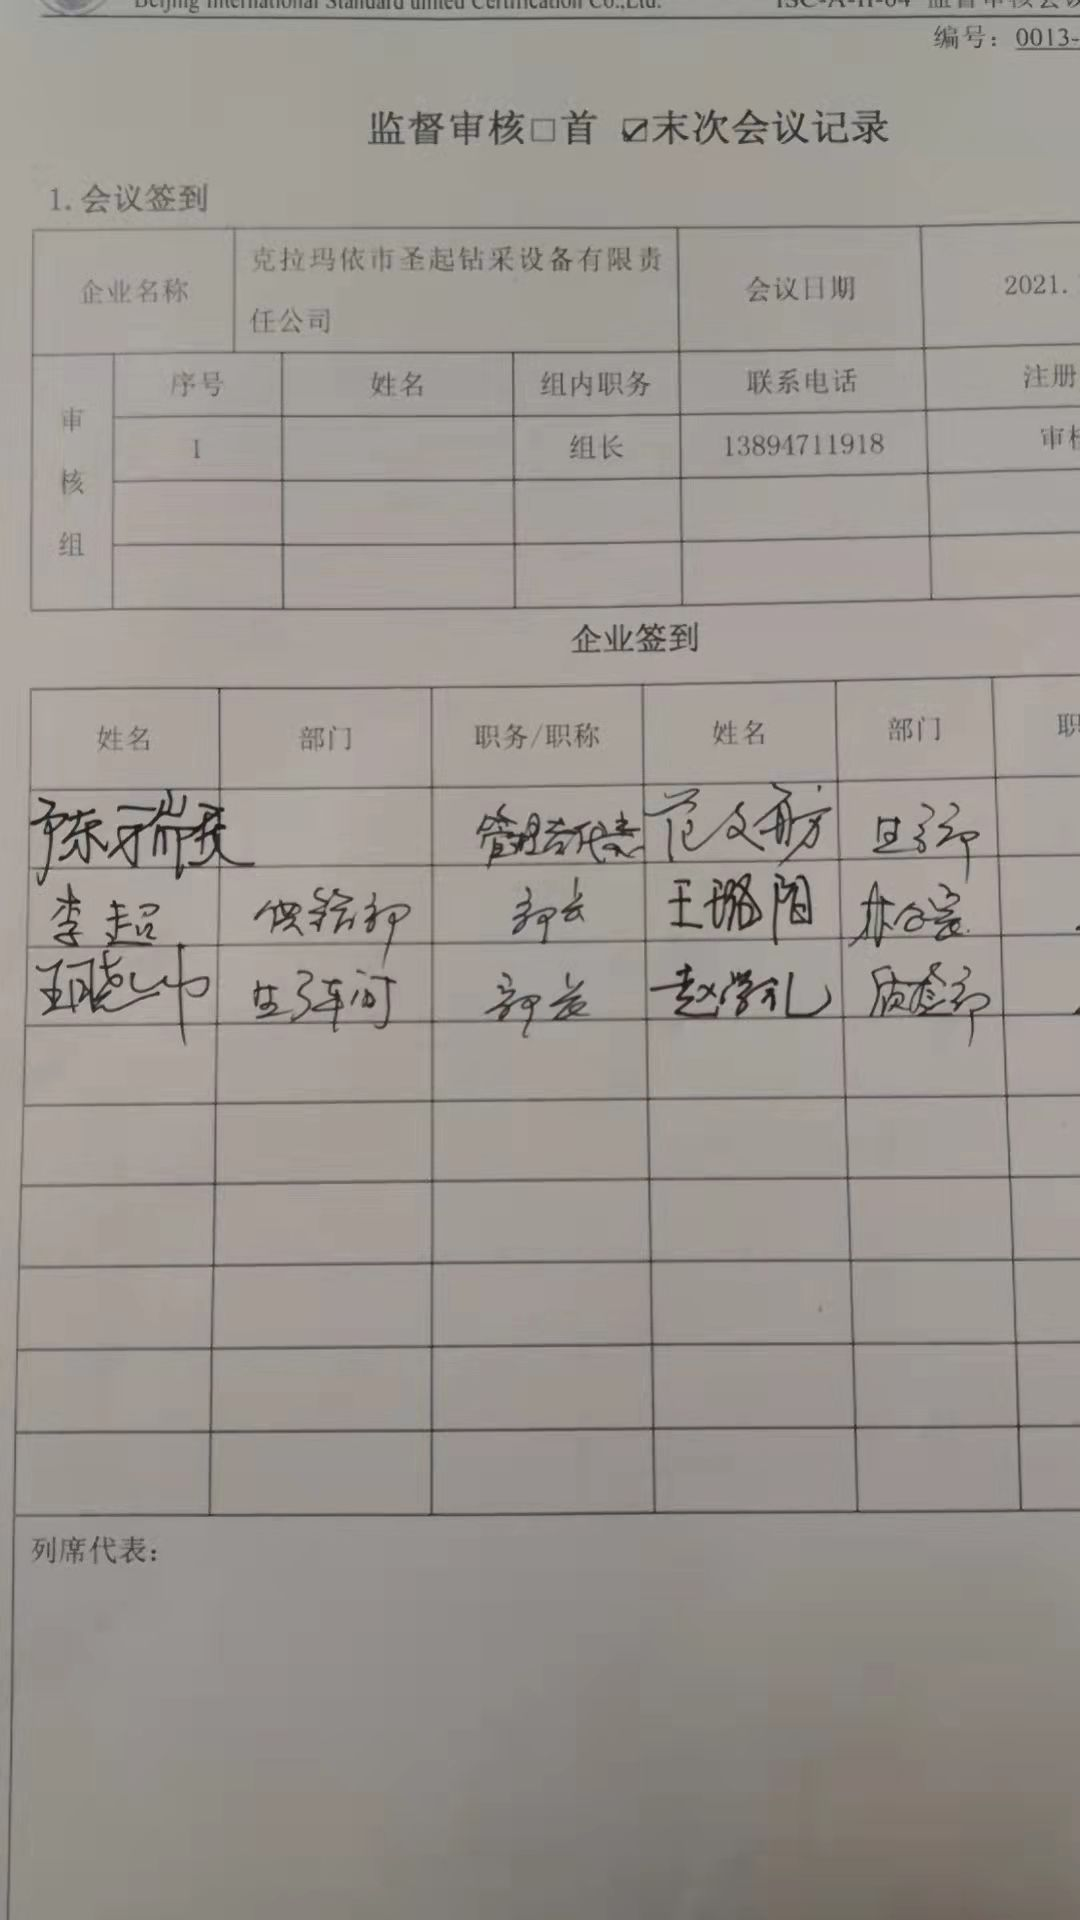 Beijing International Standard united Certification Co.,Ltd. ISC-A-II-04 监督审核会议
编号：0013-
监督审核□首 ☑末次会议记录
1.会议签到
企业名称 克拉玛依市圣起钻采设备有限责任公司 会议日期 2021.
审核组 序号 姓名 组内职务 联系电话 注册
1 组长 13894711918 审核
企业签到
姓名 部门 职务/职称 姓名 部门 职
管理者代表 范文 生产部
李超 供销部 部长 王璐阳 办公室
王晓 生产车间 部长 赵学礼 质检部
列席代表：